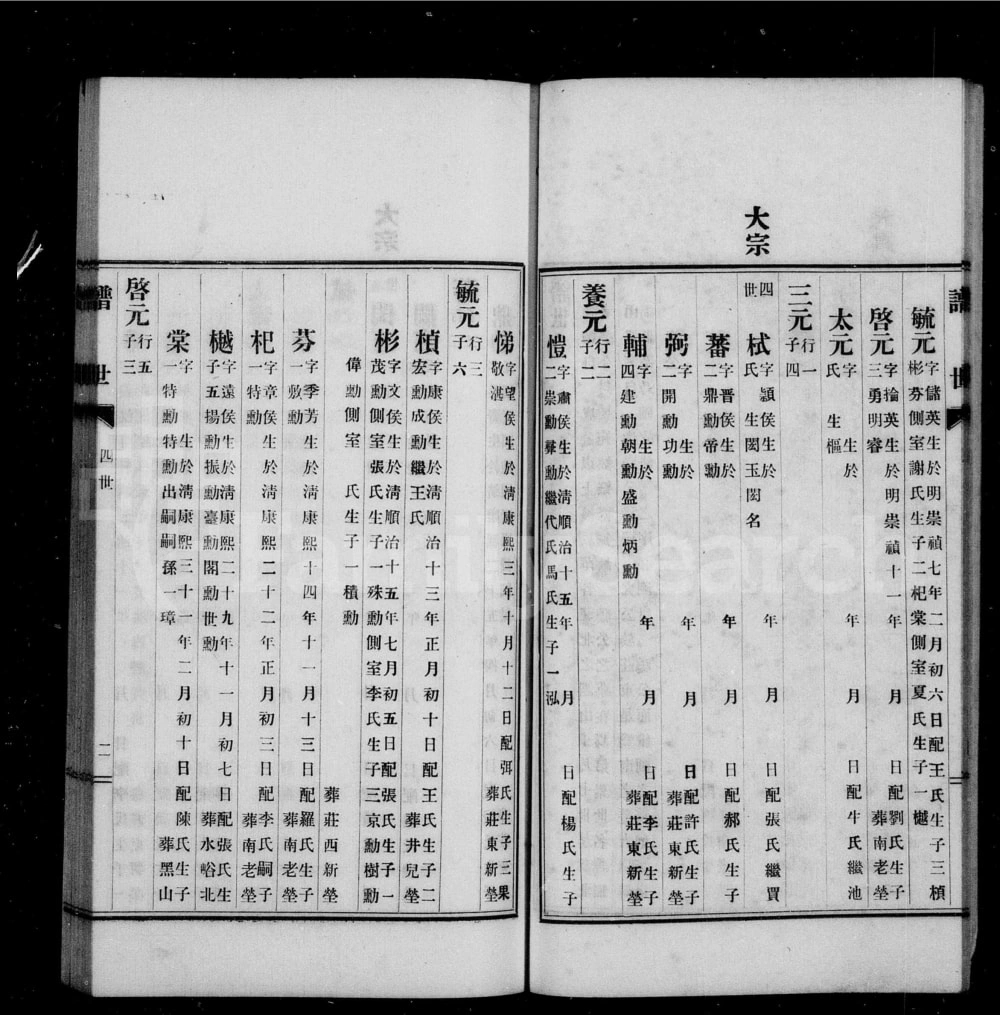 大宗
譜 世
毓元 字儲英生於明崇禎七年二月初六日配王氏生子三楨
彬芬側室謝氏生子二杞棠側室夏氏生子一樾
啓元 字掄英生於明崇禎十一年 月 日配劉氏生子
三勇明睿 葬南老塋
太元 字 生於 年 月 日配牛氏繼池
氏 生樞
三元 行一
子四
四世
栻 字潁侯生於 年 月 日配張氏繼賈
氏 生閎玉閎名
蕃 字晋侯生於 年 月 日配郝氏生子
二鼎勳帝勳
弼 字 生於 年 月 日配許氏生子
二開勳功勳 葬莊東新塋
輔 字 生於 年 月 日配李氏生子
四建勳朝勳盛勳炳勳 葬莊東新塋
養元 行二
子二
愷 字肅侯生於清順治十五年 月 日配楊氏生子
二崇勳彝勳繼代氏馬氏生子一泓
悌 字望侯生於清康熙三年十月十二日配弭氏生子三果
敬湛 葬莊東新塋
毓元 行三
子六
楨 字康侯生於清順治十三年正月初十日配王氏生子二
宏勳成勳繼王氏 葬井兒塋
彬 字文侯生於清順治十五年七月初五日配張氏生子一
茂勳側室張氏生子一殊勳側室李氏生子三京勳樹勳
偉勳側室 氏生子一積勳
葬莊西新塋
芬 字季芳生於清康熙十四年十一月十三日配羅氏生子
一敳勳 葬南老塋
杞 字章侯生於清康熙二十二年正月初三日配李氏嗣子
一特勳 葬南老塋
樾 字遠侯生於清康熙二十九年十一月初七日配張氏生
子五揚勳振勳臺勳閣勳世勳 葬水峪北
棠 字 生於清康熙三十一年二月初十日配陳氏生子
一特勳特勳出嗣嗣孫一璋 葬黑山
啓元 行五
子三
譜 世
四世
二